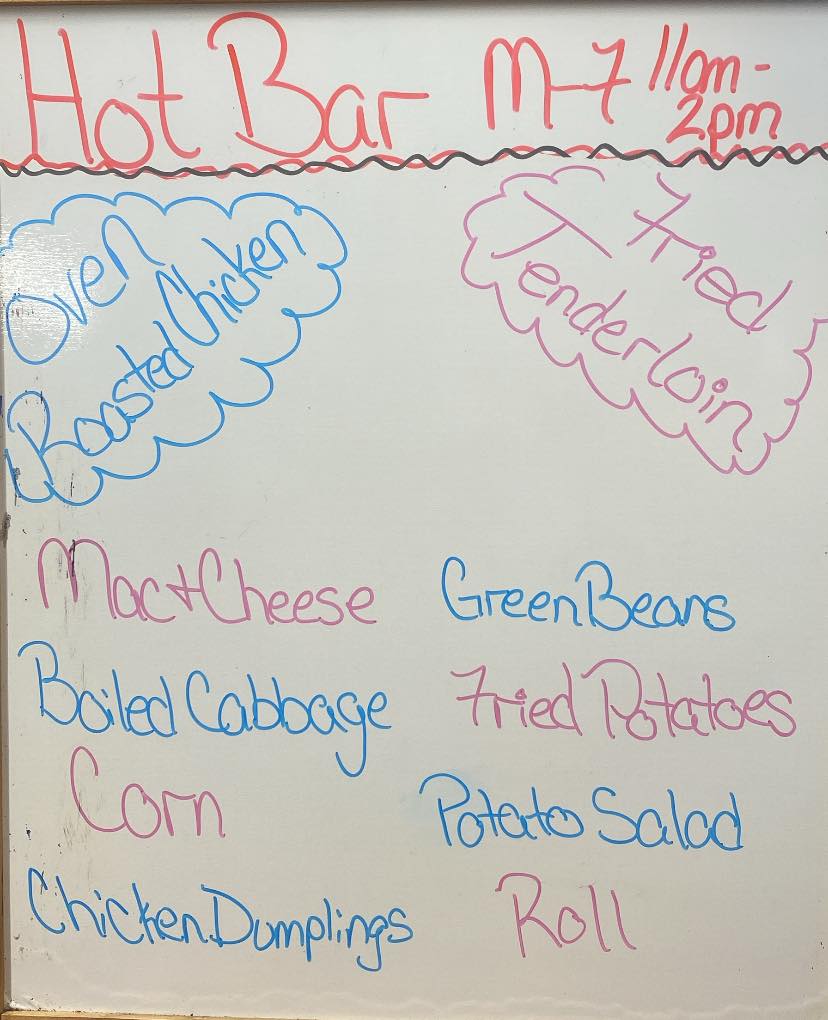 Hot Bar M-F 11am-
2pm
Oven
Roasted Chicken
Fried
Tenderloin
Mac + Cheese
Green Beans
Boiled Cabbage
Fried Potatoes
Corn
Potato Salad
Chicken Dumplings
Roll